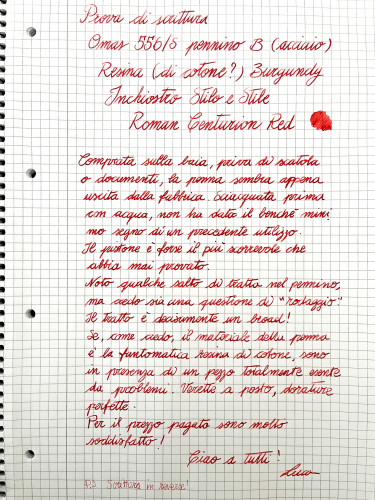 Prova di scrittura
Omas 556/S pennino B (acciaio)
Resina (di cotone?) Burgundy
Inchiostro Stilo e Stile
Roman Centurion Red
Comprata sulla baia, priva di scatola
o documenti, la penna sembra appena
uscita dalla fabbrica. Sciacquata prima
con acqua, non ha dato il benché mini
mo segno di un precedente utilizzo.
Il pistone è forse il più scorrevole che
abbia mai provato.
Noto qualche salto di tratto nel pennino,
ma credo sia una questione di "rodaggio".
Il tratto è decisamente un broad!
Se, come credo, il materiale della penna
è la fantomatica resina di cotone, sono
in presenza di un pezzo totalmente esente
da problemi. Verette a posto, dorature
perfette.
Per il prezzo pagato sono molto
soddisfatto!
Ciao a tutti!
Luca
P.S. Scrittura in reverse!